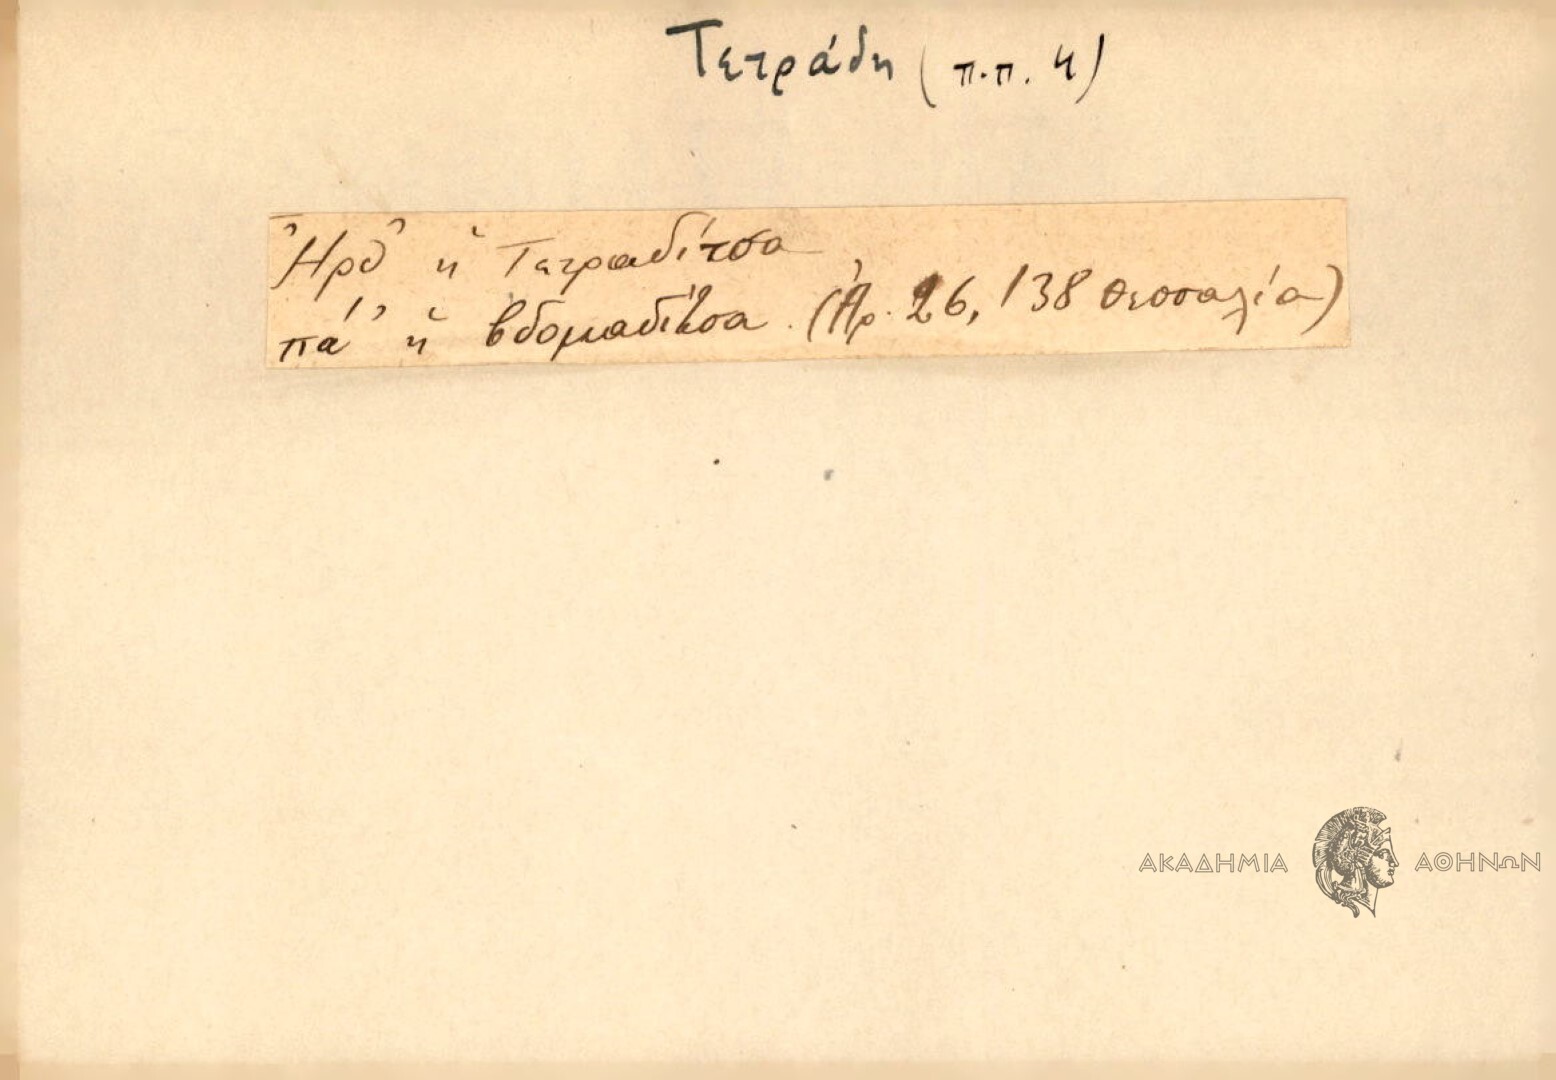 Τετράδη (π.π. 4)
Ἦρθ' ἡ Τετραδίτσα
πά' ἡ βδομαδίτσα. (Ἀρ. 26, 138 Θεσσαλία)
ΑΚΑΔΗΜΙΑ ΑΘΗΝΩΝ